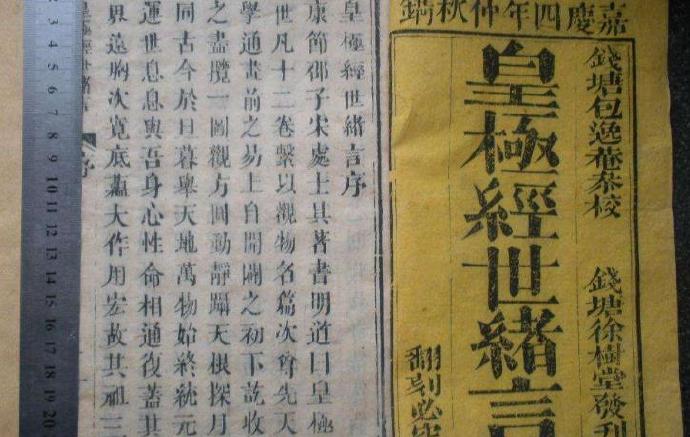 嘉慶四年仲秋鐫
錢塘包逸菴叅校
錢塘徐樹堂發刊
皇極經世緒言
翻刻必
皇極經世緒言序
康節邵子宋處士其著書明道曰皇極
世凡十二卷繫以觀物名篇次會先天
學通畫前之易上自開闢之初下訖收
之盡攬一圖觀方圓動靜躡天根探月
同古今於旦暮舉天地萬物始終統元
運世息息與吾身心性命相通復蓋其
界遠胸次寬底蘊大作用宏故其祖三
皇極經世緒言
序
2 3 4 5 6 7 8 9 10 11 12 13 14 15 16 17 18 19 20